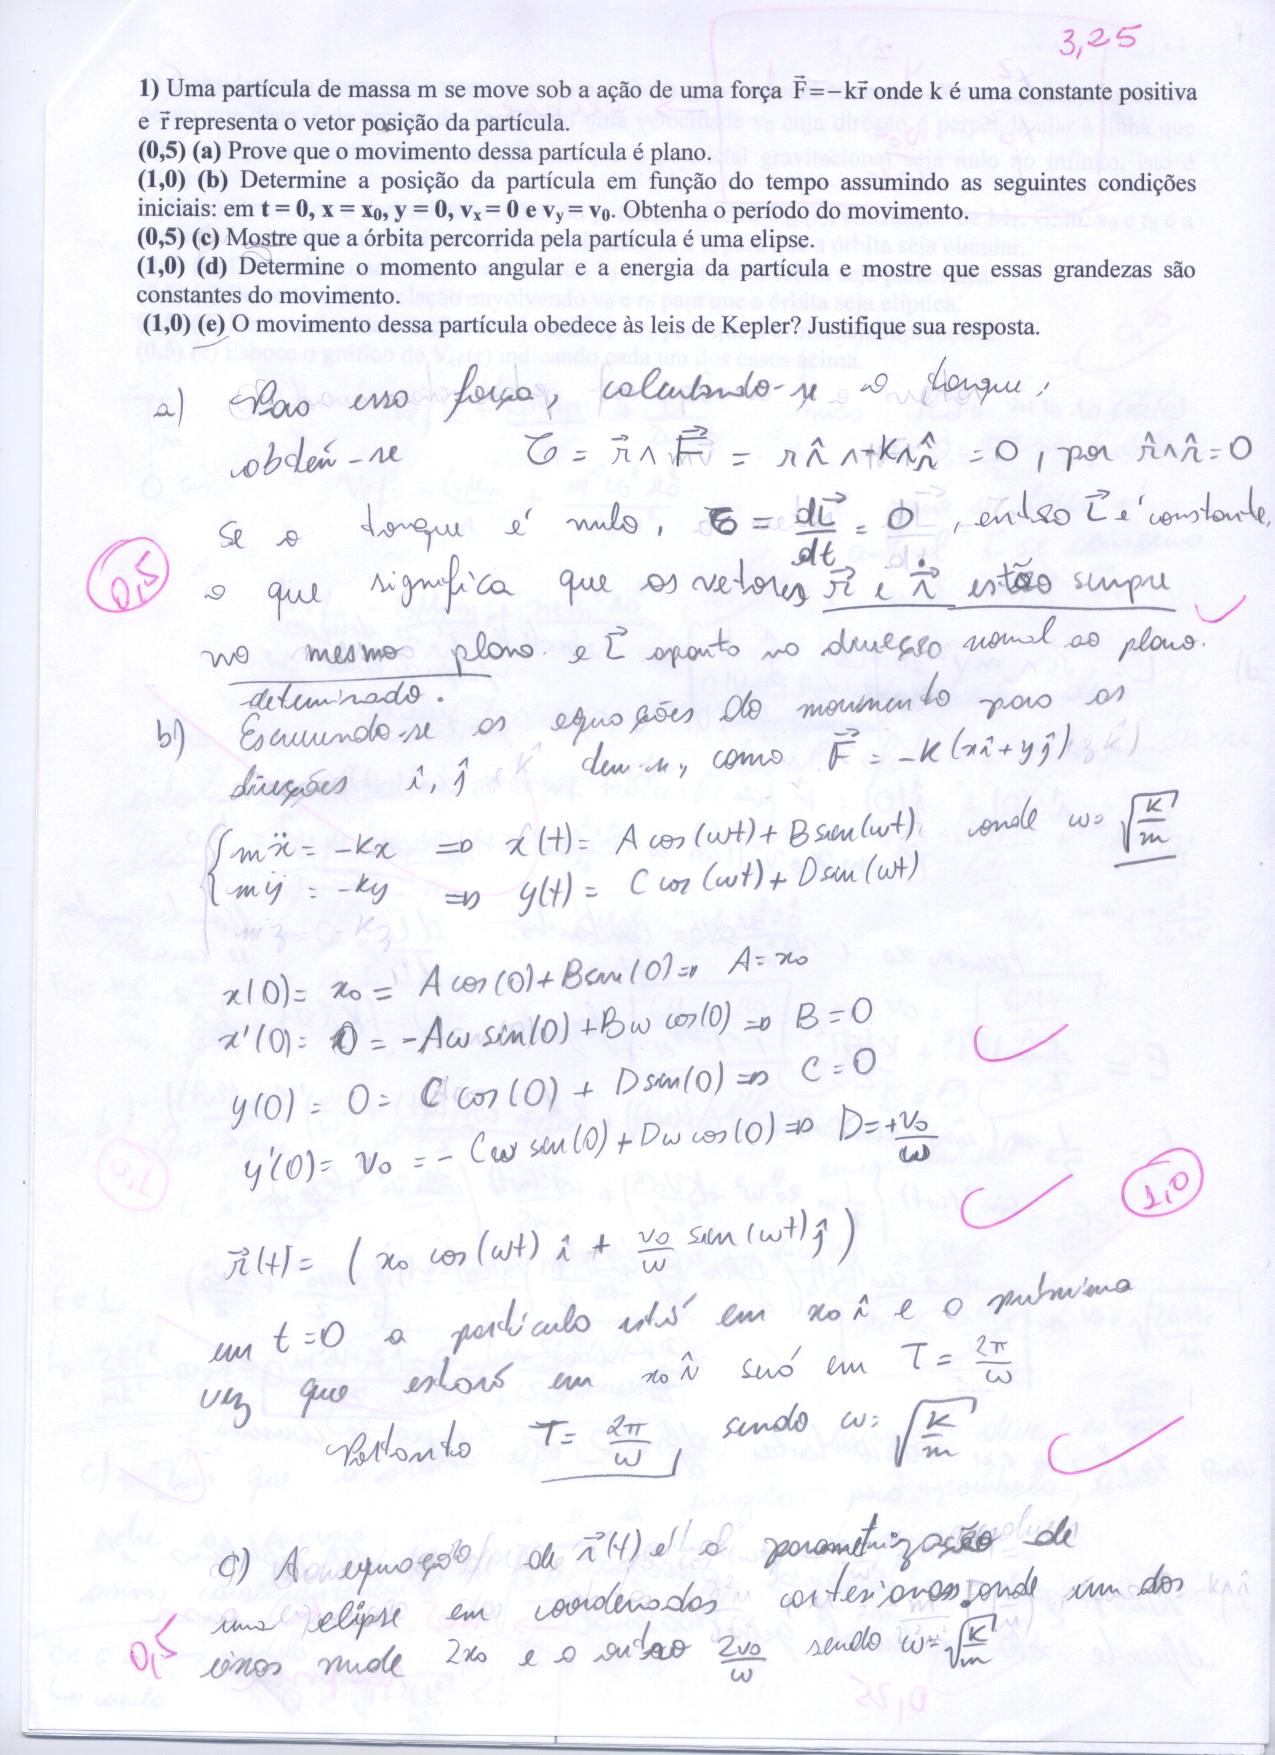 3,25
1) Uma partícula de massa m se move sob a ação de uma força F⃗=−kr⃗ onde k é uma constante positiva
e r⃗ representa o vetor posição da partícula.
(0,5) (a) Prove que o movimento dessa partícula é plano.
(1,0) (b) Determine a posição da partícula em função do tempo assumindo as seguintes condições
iniciais: em t = 0, x = x₀, y = 0, vₓ = 0 e vᵧ = v₀. Obtenha o período do movimento.
(0,5) (c) Mostre que a órbita percorrida pela partícula é uma elipse.
(1,0) (d) Determine o momento angular e a energia da partícula e mostre que essas grandezas são
constantes do movimento.
(1,0) (e) O movimento dessa partícula obedece às leis de Kepler? Justifique sua resposta.
a) Para essa força, calculando-se o torque,
obtém-se τ = r⃗ ∧ F⃗ = r r̂ ∧ + k r r̂ = 0, por r̂ ∧ r̂ = 0
Se o torque é nulo, τ = dL⃗/dt = 0, então L⃗ é constante,
0,5
o que significa que os vetores r⃗ e ṙ⃗ estão sempre
no mesmo plano. e L⃗ aponta na direção normal ao plano.
determinado.
b) Escrevendo-se as equações do movimento para as
direções î, ĵ, como F⃗ = -k(xî + yĵ)
mẍ = -kx ⇒ x(t) = A cos(ωt) + B sen(ωt), onde ω = √(k/m)
mÿ = -ky ⇒ y(t) = C cos(ωt) + D sen(ωt)
x(0) = x₀ = A cos(0) + B sen(0) ⇒ A = x₀
x'(0) = 0 = -Aω sin(0) + Bω cos(0) ⇒ B = 0
y(0) = 0 = C cos(0) + D sen(0) ⇒ C = 0
y'(0) = v₀ = -Cω sen(0) + Dω cos(0) ⇒ D = +v₀/ω
1,0
r⃗(t) = (x₀ cos(ωt) î + v₀/ω sen(ωt) ĵ)
em t = 0 a partícula está em x₀ î e a próxima
vez que estará em x₀ î será em T = 2π/ω
Portanto T = 2π/ω, sendo ω = √(k/m)
c) A equação de r⃗(t) é a parametrização de
uma elipse em coordenadas cartesianas, onde um dos
0,5
eixos mede 2x₀ e o outro 2v₀/ω sendo ω = √(k/m)